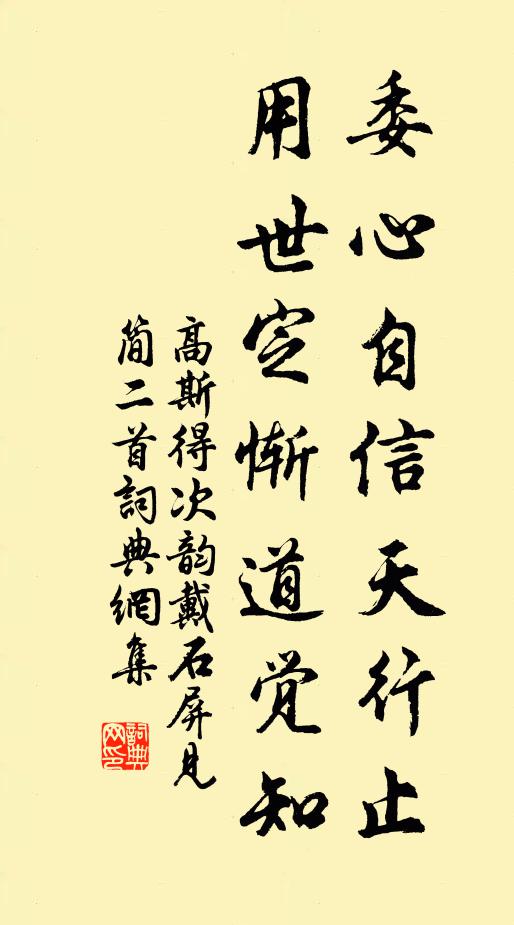 委心自信天行止
用世定惭道觉知
高斯得次韵戴石屏见
简二首詞典網集
詞典网印